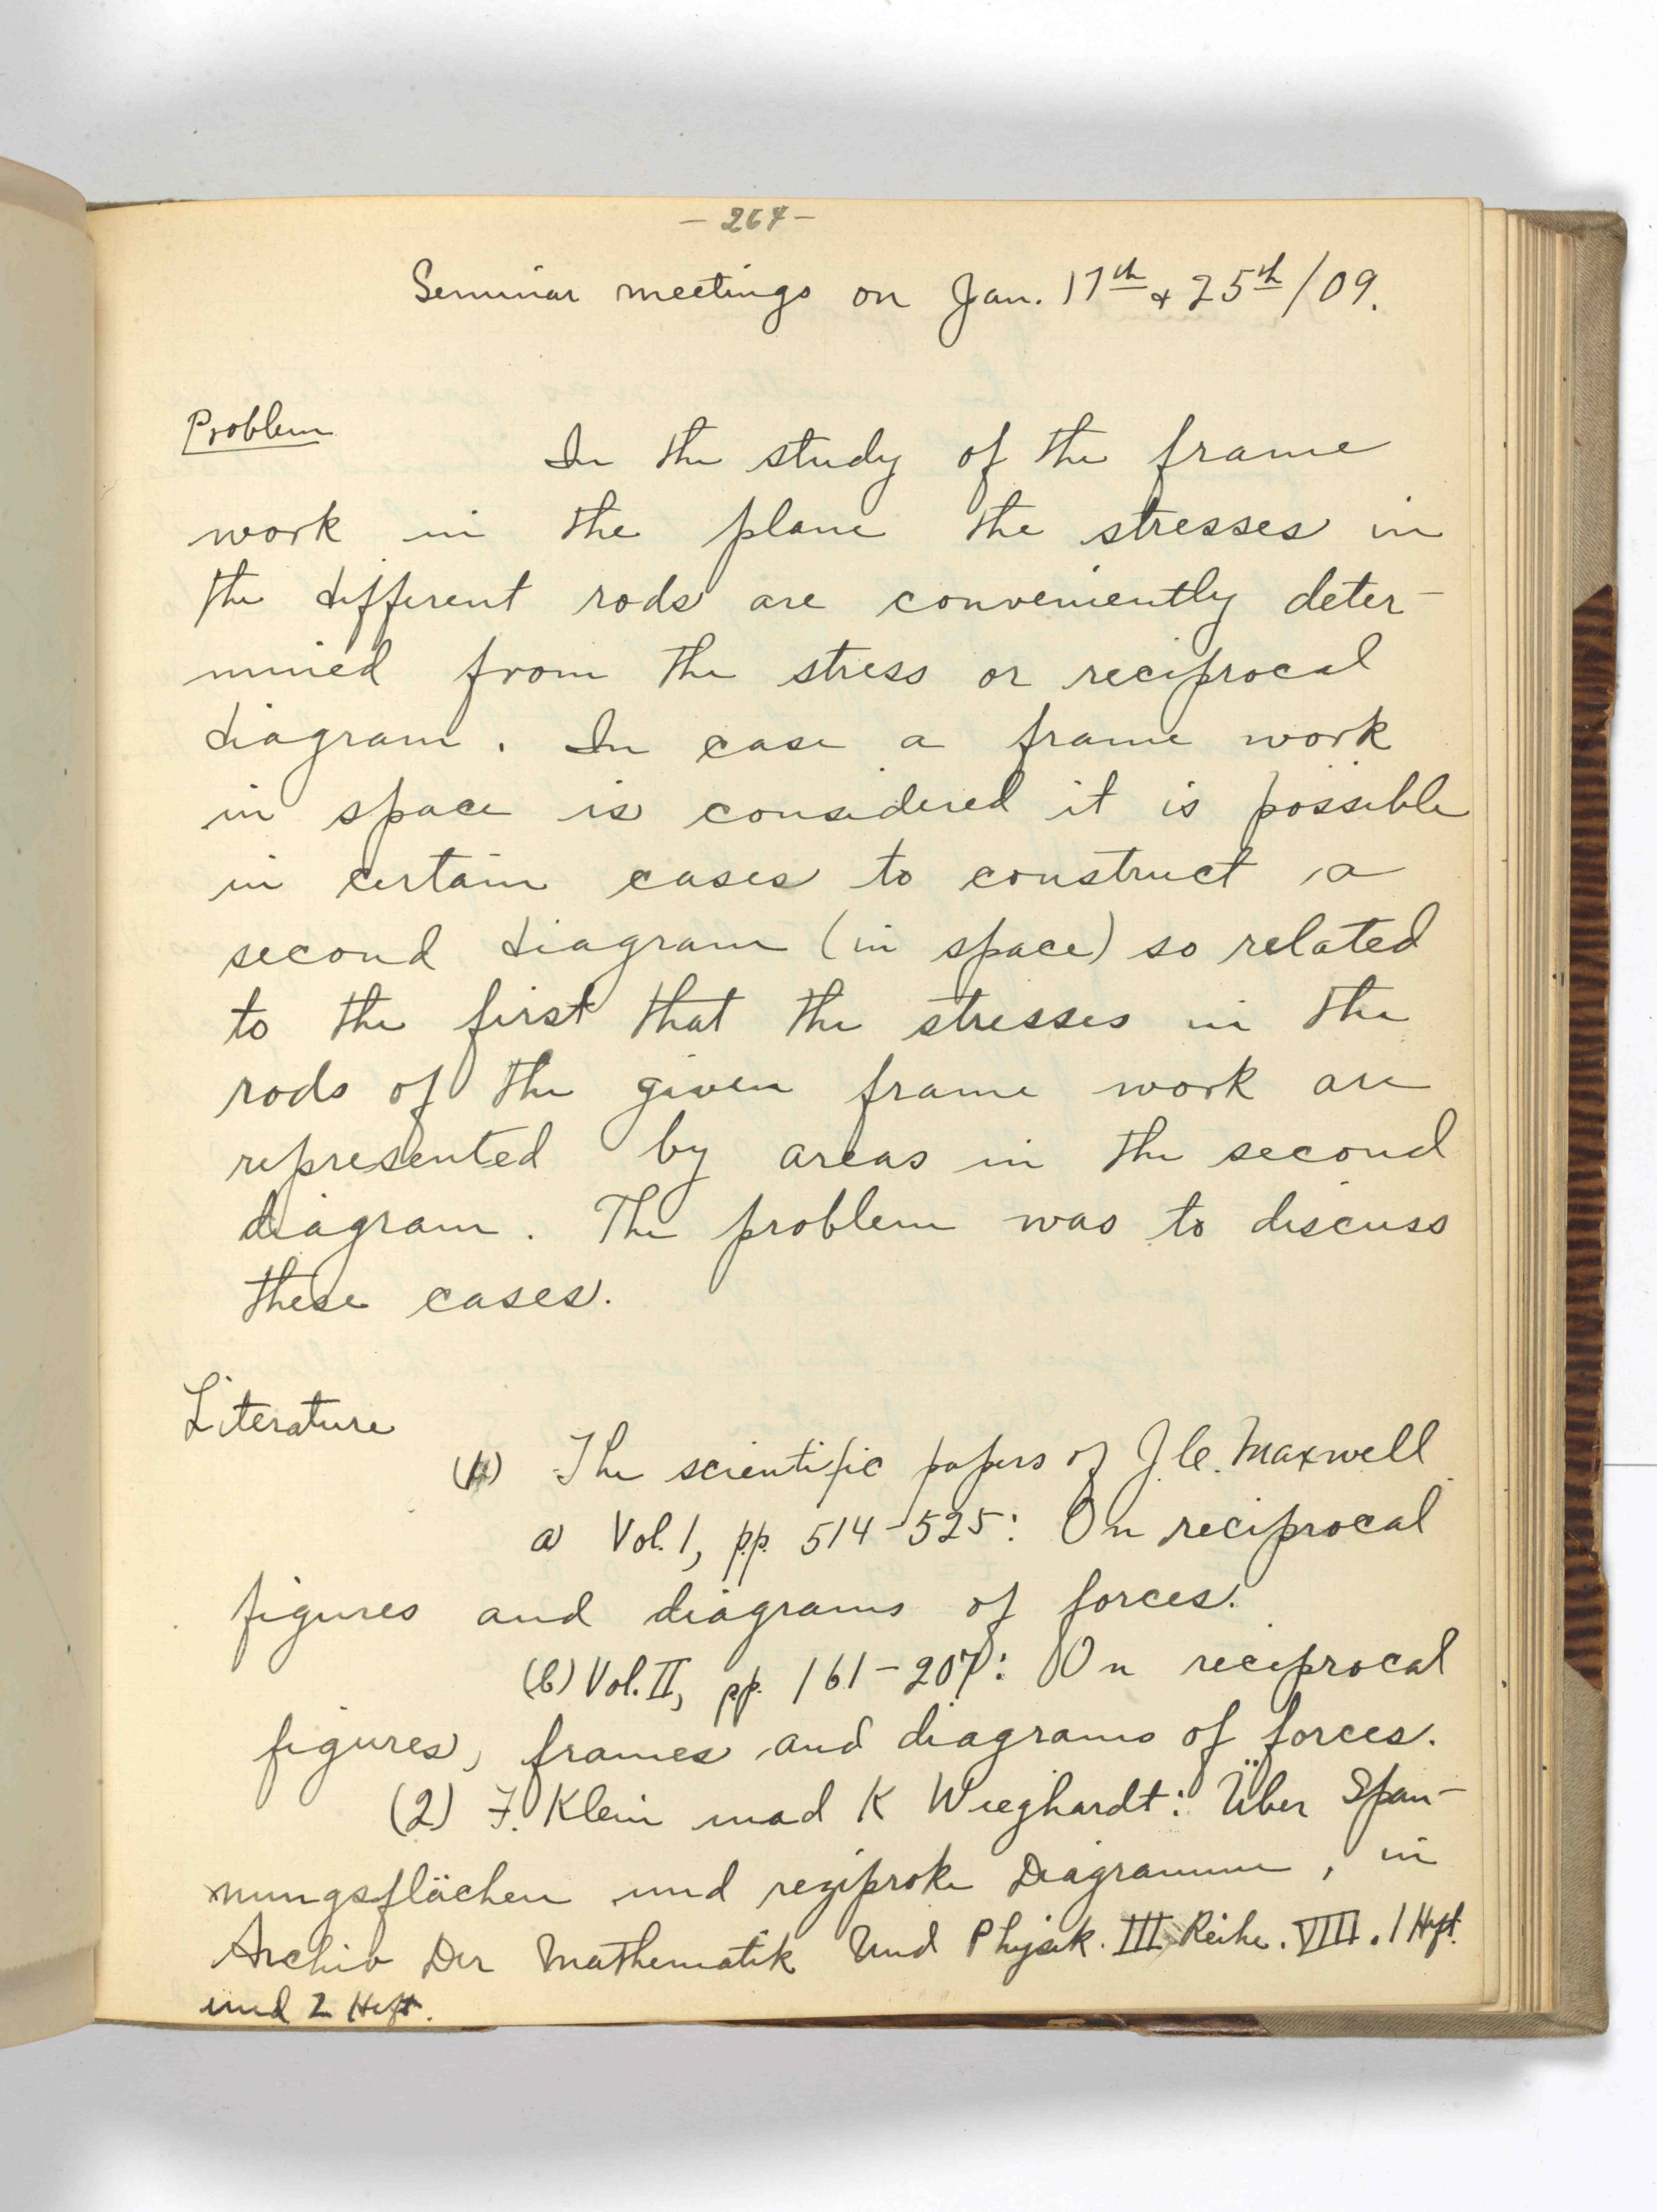 - 264 -
Seminar meetings on Jan. 17th + 25th /09.
Problem
In the study of the frame
work in the plane the stresses in
the different rods are conveniently deter-
mined from the stress or reciprocal
diagram. In case a frame work
in space is considered it is possible
in certain cases to construct a
second diagram (in space) so related
to the first that the stresses in the
rods of the given frame work are
represented by areas in the second
diagram. The problem was to discuss
these cases.
Literature
(1) The scientific papers of J. C. Maxwell
a) Vol. 1, pp. 514-525: On reciprocal
figures and diagrams of forces.
(b) Vol. II, pp. 161-207: On reciprocal
figures, frames and diagrams of forces.
(2) F. Klein und K Wieghardt: Über Span-
nungsflächen und reziproke Diagramme, in
Archiv Der Mathematik Und Physik. III Reihe. VIII. 1 Heft.
und 2 Heft.